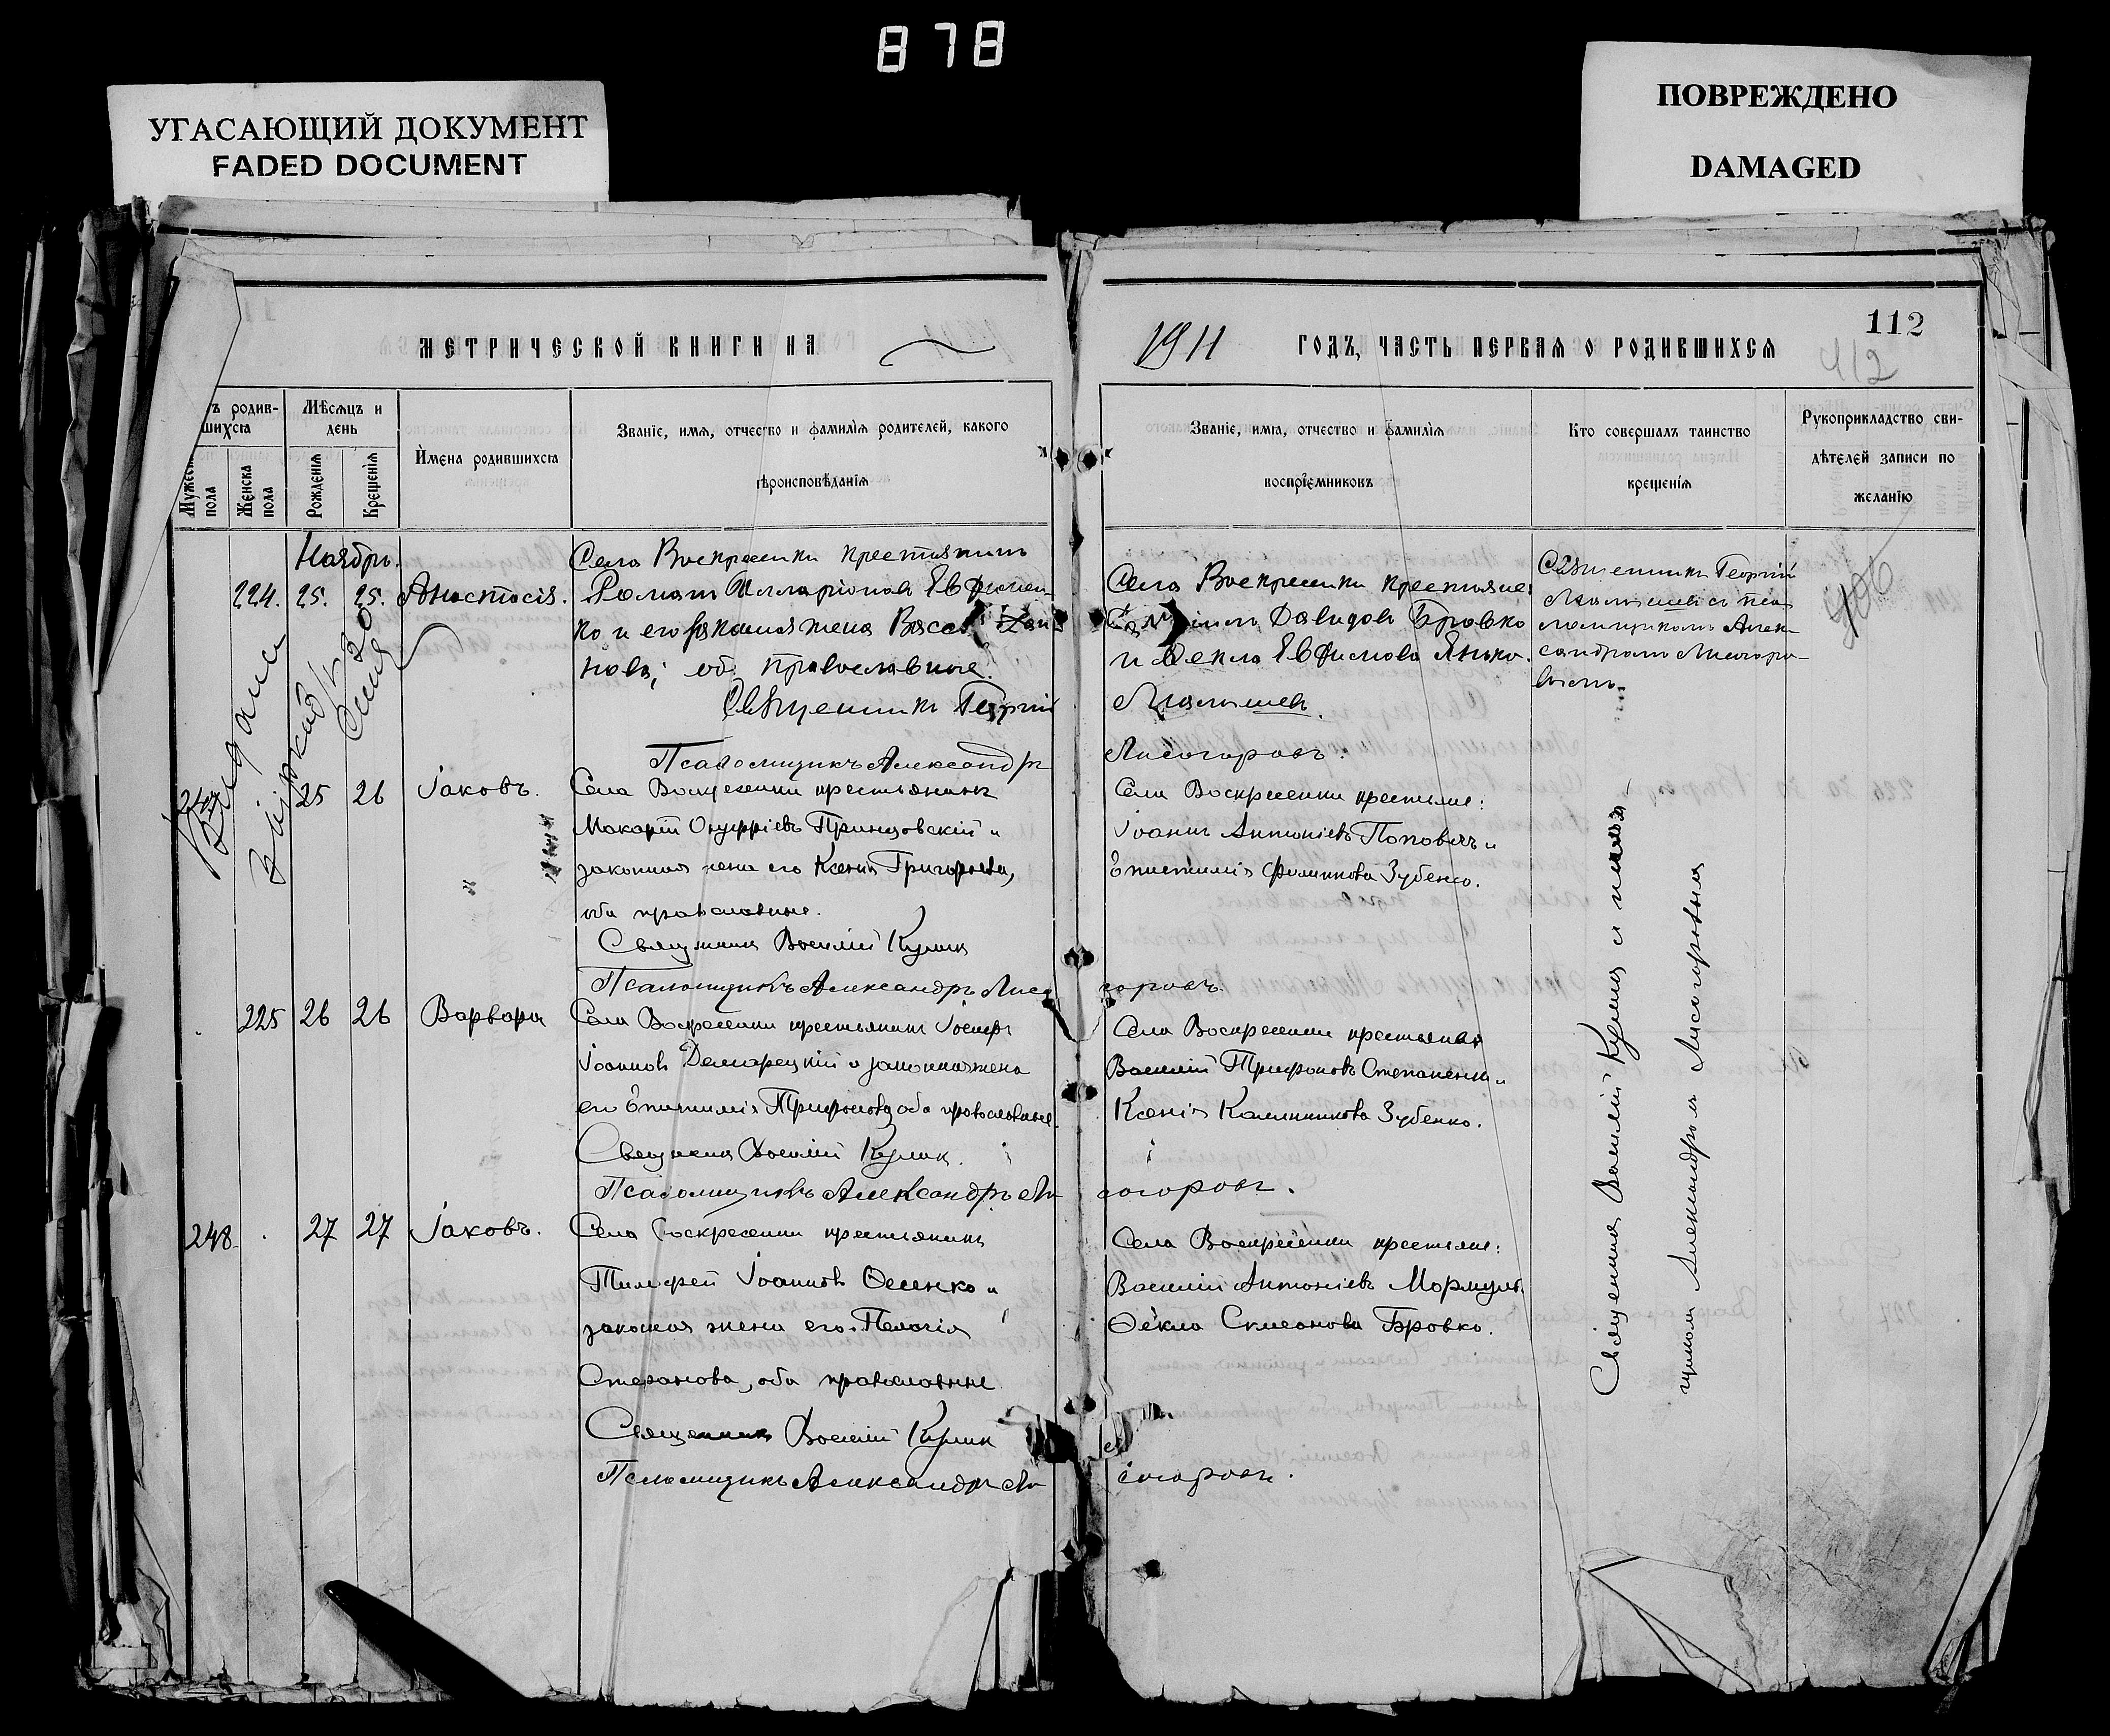 878
УГАСАЮЩИЙ ДОКУМЕНТ
FADED DOCUMENT
ПОВРЕЖДЕНО
DAMAGED
МЕТРИЧЕСКОЙ КНИГИ НА
1911 ГОДЪ, ЧАСТЬ ПЕРВАЯ О РОДИВШИХСЯ
112
412
ъ родив-
шихся
Мѣсяцъ и
день
Мужеск
пола
Женска
пола
Рожденія
Крещенія
Имена родившихся
Званіе, имя, отчество и фамилія родителей, какого
вѣроисповѣданія
Званіе, имя, отчество и фамилія
воспріемниковъ
Кто совершалъ таинство
крещенія
Рукоприкладство сви-
дѣтелей записи по
желанію
Ноябрь.
224. 25. 25. Анастасія.
Села Воскресенки крестьянинъ
Романъ Илларіоновъ Евфимен-
ко и его законная жена
нова; об. православные.
Священникъ Георгій
Псаломщикъ Александръ
Села Воскресенки крестьяне:
Давидовъ Бровко
и Ѳекла Евфимова Янько.
Малышев.
Лисогоровъ.
Священникъ Георгій
Малышев съ пса-
ломщикомъ Алек-
сандромъ Лисогоро-
вымъ.
406
Выдана
247 25 26 Іаковъ.
Села Воскресенки крестьянинъ
Макарій Онуфріевъ Принцовскій и
законная жена его Ксенія Григорьева,
оба православные.
Священникъ Василій Кулик
Псаломщикъ Александръ Лисо
Села Воскресенки крестьяне:
Іоаннъ Антоніевъ Поповичъ и
Епистимія Филиппова Зубенко.
горовъ.
225 26 26 Варвара
Села Воскресенки крестьянинъ Іосифъ
Іоанновъ и законная жена
его Епистимія Трифонова, оба православные.
Священник Василій Кулик.
Псаломщикъ Александръ Ли
Села Воскресенки крестьяне
Василій Трифоновъ Степаненко и
Ксенія Калинникова Зубенко.
согоровъ.
248. 27 27 Іаковъ.
Села Воскресенки крестьянинъ
Тимофей Іоанновъ Ѳесенко и
законная жена его Пелагія
Стефанова, оба православные
Священникъ Василій Кулик
Псаломщикъ Александръ Ли
Села Воскресенки крестьяне:
Василій Антоніевъ Мормуль.
Ѳекла Симеонова Бровко.
согоровъ.
Священникъ Василій Кулик с псалом-
щиком Александром Лисогоровым